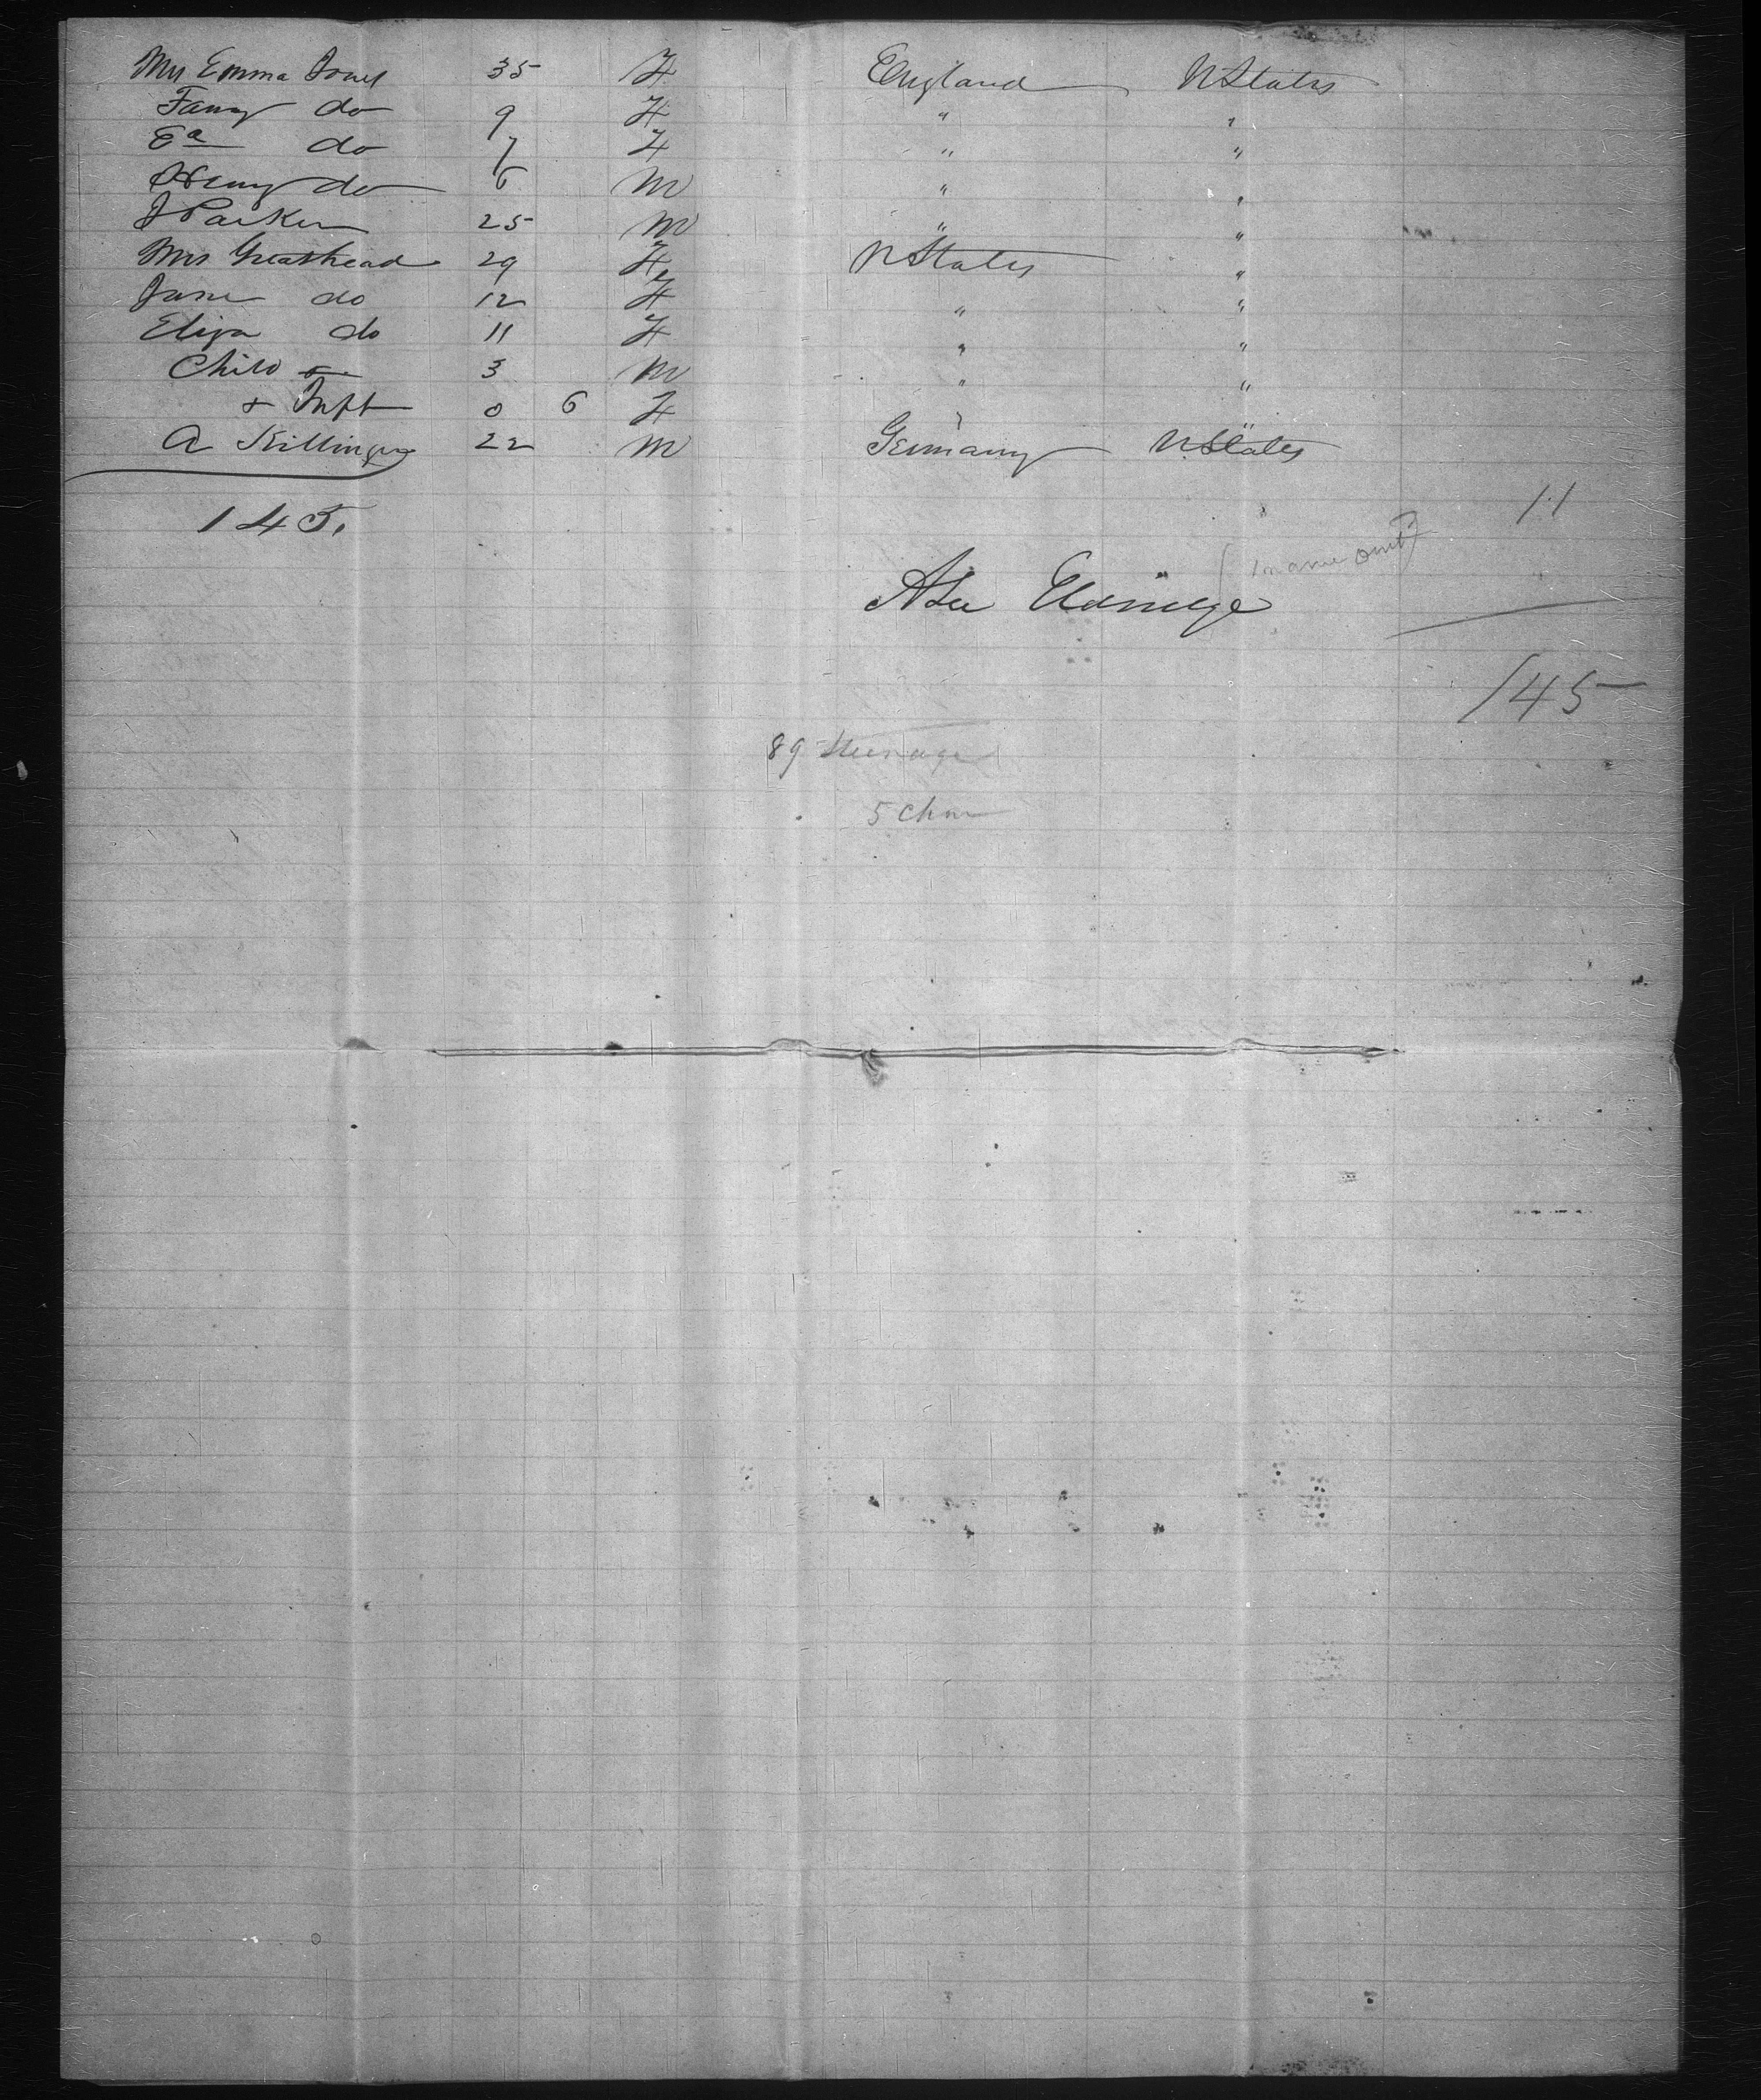 Mrs Emma Jones 35 F England U States
Fanny do 9 F " "
Ea do 7 F " "
Henry do 6 M " "
J Parker 25 M " "
Mrs Greathead 29 F U States "
Jane do 12 F " "
Eliza do 11 F " "
Child 3 M " "
+ Inft 0 6 F " "
A Killinger 22 M Germany U States
145.
11
(1 name omit)
Asa Eldridge
145
89 Steerage
5 Chn